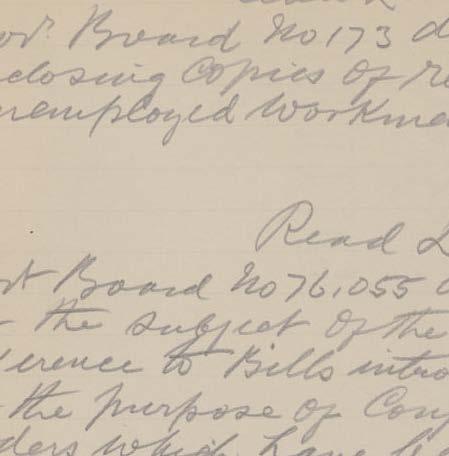 Board No 173 d
closing Copies of re
nemployed Workme
Read L
Board No 76,055
the subject of the
erence to Bills intro
the purpose of Con
ders which have be